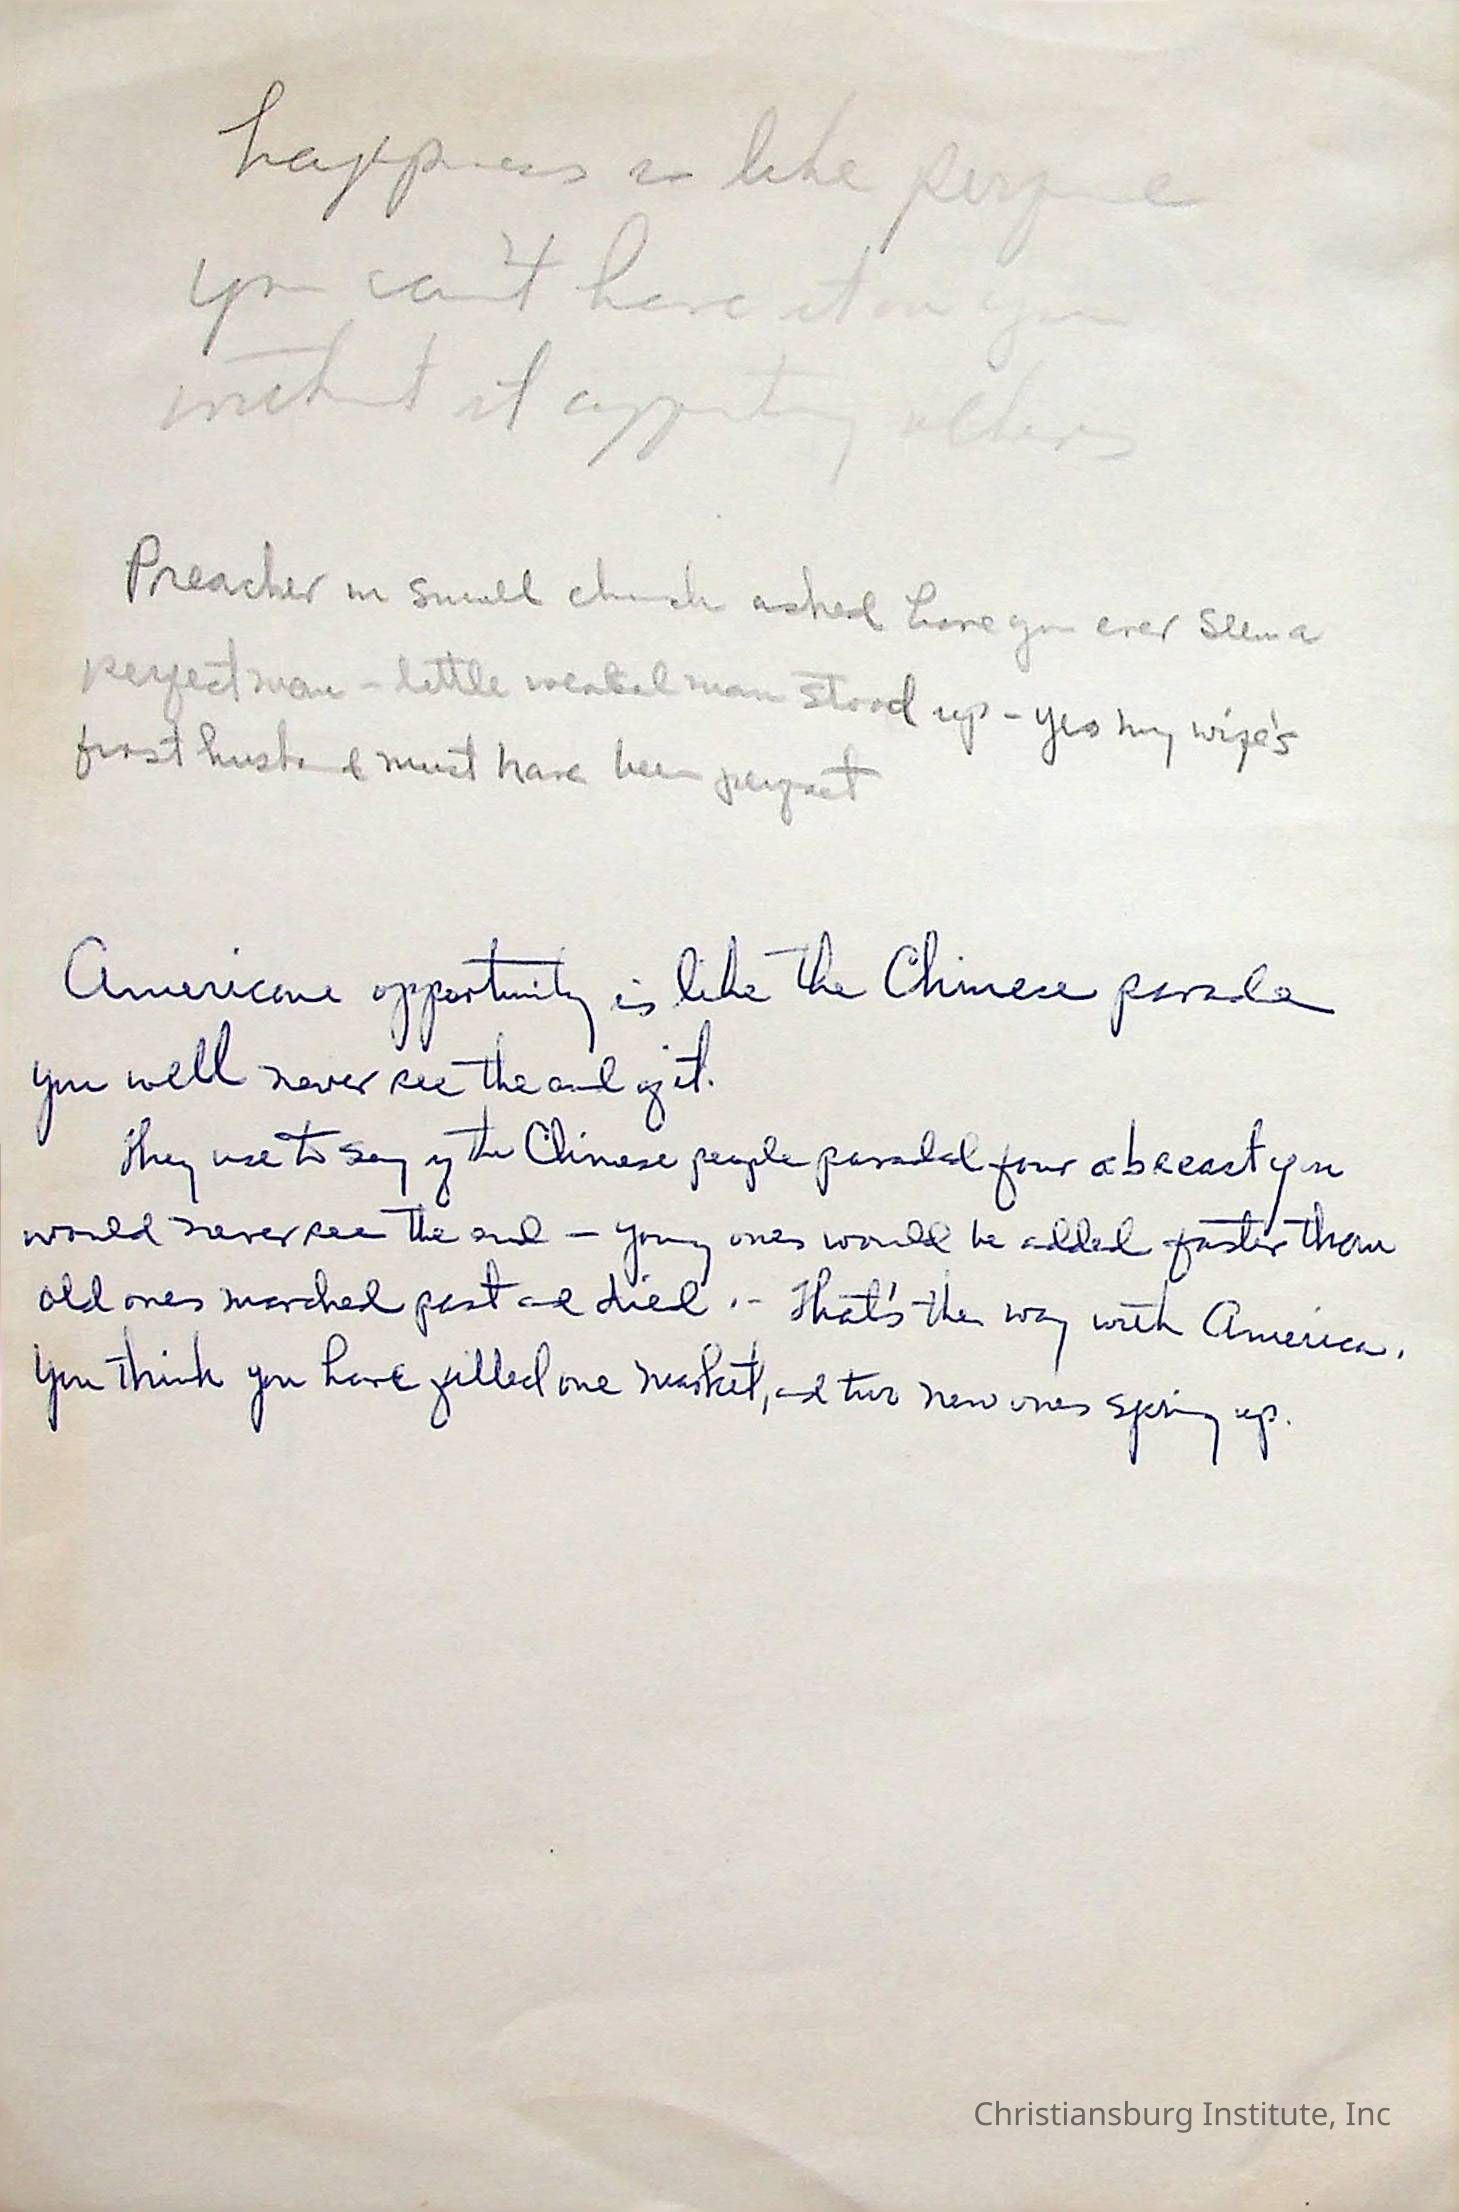 happiness is like perfume
you can't have it on you
without it affecting others
Preacher in small church asked have you ever seen a
perfect man - little weaked man stood up - yes my wife's
first husband must have been perfect
Americans opportunity is like the Chinese parade
you will never see the end of it.
They use to say if the Chinese people paraded four abreast you
would never see the end - young ones would be added faster than
old ones marched past and died. - That's the way with America.
You think you have filled one market, and two new ones spring up.
Christiansburg Institute, Inc